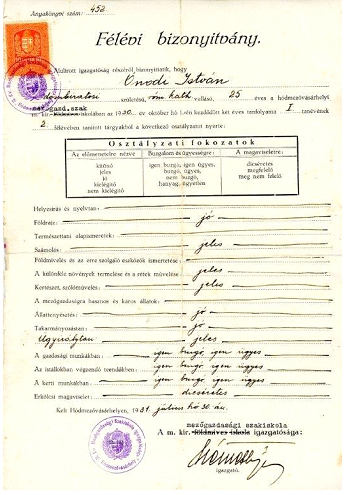 Anyakönyvi szám: 452
Félévi bizonyitvány.
Alulirott igazgatóság részéről bizonyittatik, hogy
Ónodi István
születésű, róm. kath. vallású, 25 éves a hódmezővásárhelyi
mezőgazd. szak
m. kir. iskolában az 1930. év október hó 1-én kezdődött két éves tanfolyama I. tanévének
2 félévében tanitott tárgyakból a következő osztályzatot nyerte:
Osztályzati fokozatok
Az előmenetelre nézve Szorgalom és ügyességre: A magaviseletre:
kitünő igen buzgó, igen ügyes dicséretes
jeles buzgó, ügyes megfelelő
jó nem buzgó meg nem felelő
kielégitő hanyag, ügyetlen
nem kielégitő
Helyesirás és nyelvtan:
Földrajz: jó
Természettani alapismeretek:
Számolás: jeles
Földmüvelés és az erre szolgáló eszközök ismertetése: jeles
A különféle növények termelése és a rétek müvelése: jeles
Kertészet, szőlőmüvelés: jeles
A mezőgazdaságra hasznos és káros állatok:
Állattenyésztés: jó
Takarmányozástan: jó
Ügyviteltan jeles
A gazdasági munkákban: igen buzgó, igen ügyes
Az istállókban végzendő teendőkben: igen buzgó igen ügyes
A kerti munkákban: igen buzgó igen ügyes
Erkölcsi magaviselet: dicséretes
Kelt Hódmezővásárhelyen, 1931. július hó 30. án.
mezőgazdasági szakiskola
A m. kir. földmives iskola igazgatósága:
igazgató.